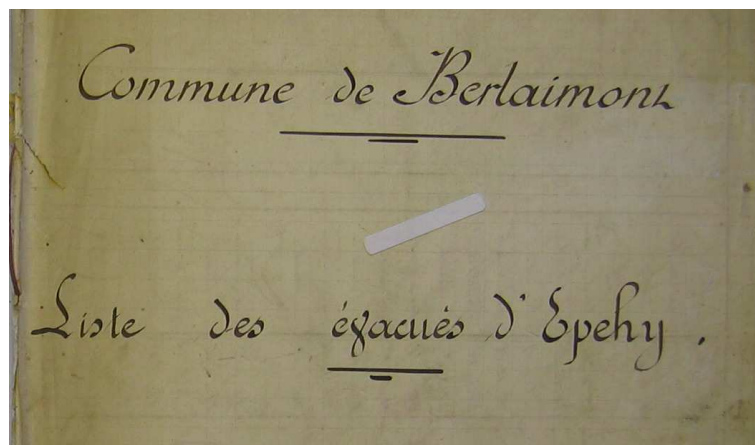 Commune de Berlaimont
Liste des évacués d'Epehy.